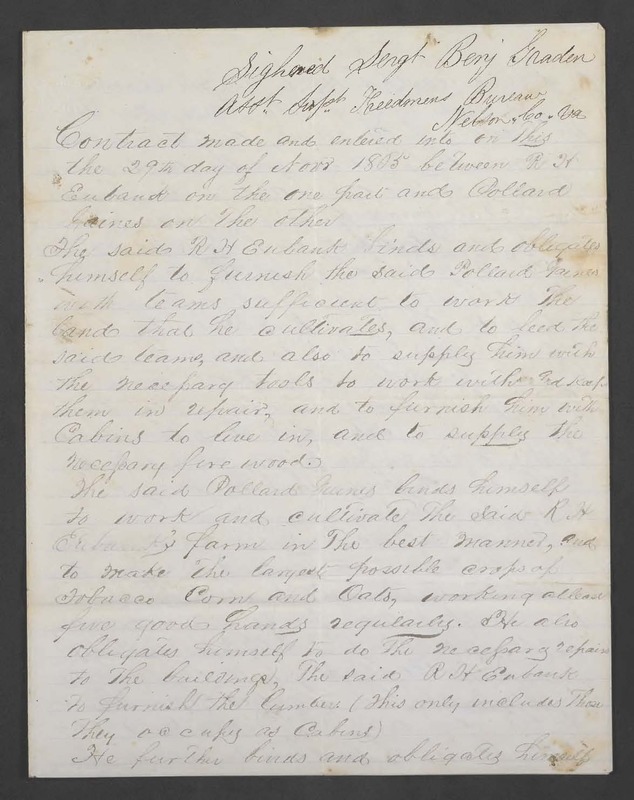 Sighned Sergt Benj Graden
Asst. Supt Freedmens Bureau
Nelson Co. Va
Contract made and entered into on this
the 29th day of Novr 1865 between R H
Eubank on the one part and Pollard
Gaines on the other
The said R H Eubank binds and obligates
himself to furnish the said Pollard Gaines
with teams sufficient to work the
land that he cultivates, and to feed the
said teams, and also to supply him with
the necessary tools to work with and keep
them in repair, and to furnish him with
Cabins to live in, and to supply the
necessary fire wood.
The said Pollard Gaines binds himself
to work and cultivate the said R H
Eubank's farm in the best manner, and
to make the largest possible crops of
Tobacco Corn and Oats, working at least
five good hands regularly. He also
obligates himself to do the necessary repairs
to the buildings, the said R H Eubank
to furnish the lumber (this only includes those
they occupy as Cabins)
He further binds and obligates himself